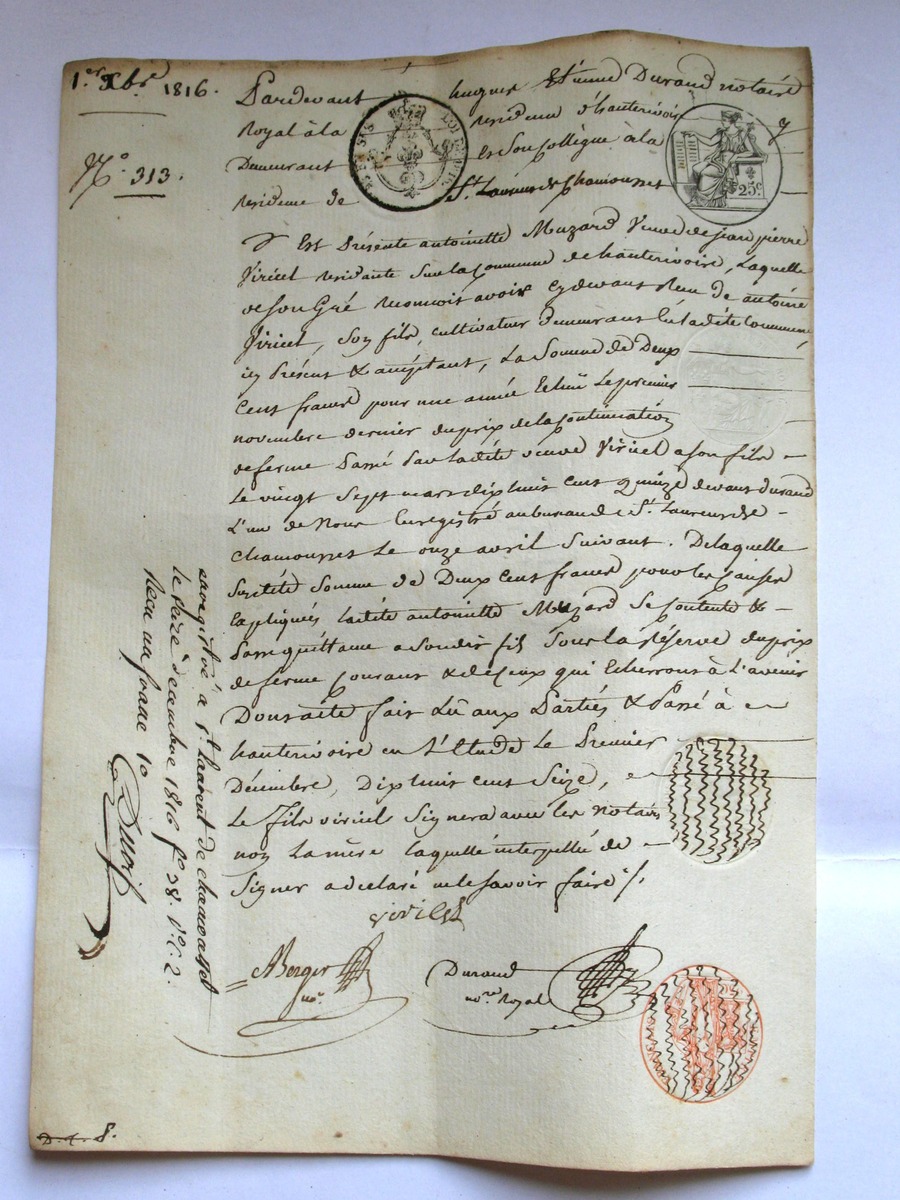 1.er Xbre 1816.
N.o 313.
Pardevant hugues Etienne Durand notaire
Royal à la residence d'hauterivoire
Demeurant et son Collègue à la
residence de St Laurent de Chamousset
25c
Est Présente antoinette Muzard Veuve de jean pierre
Viricel residante sur la Commune de hauterivoire, Laquelle
de son Gré reconnoit avoir cy devant Reçu de antoine
Viricel, son fils, cultivateur demeurant en ladite Commune,
icy présent & acceptant, La Somme de Deux
Cent francs pour une année Echue Le premier
novembre dernier du prix de la Continuation
de ferme passé par Ladite veuve Viricel a son fils
Le vingt Sept mars dix huit cent quinze devant durand
L'un de Nous Enregistré au bureau de St. Laurent de
chamousset Le onze avril Suivant. De laquelle
susdite Somme de Deux Cent francs pour les Causes
Expliquées Ladite antoinette Muzard Se Contente &
passe quittance a Son dit fils Sous La Réserve du prix
de ferme Courant & de Ceux qui Echerront à L'avenir
Dont acte fait Lû aux Parties & Passé à
hauterivoire en L'Etude Le Premier
Décembre, Dix huit cent Seize,
Le fils viricel Signera avec les Notaires
non La mère laquelle interpellée de
Signer a declaré ne le Savoir faire ./.
viricel
Berger
no.re
Durand
no.re Royal
enregistré à St. Laurent de chamousset
le seize décembre 1816 fo 28. Vo. C. 2.
Recu un franc 10
D. 4. 8.